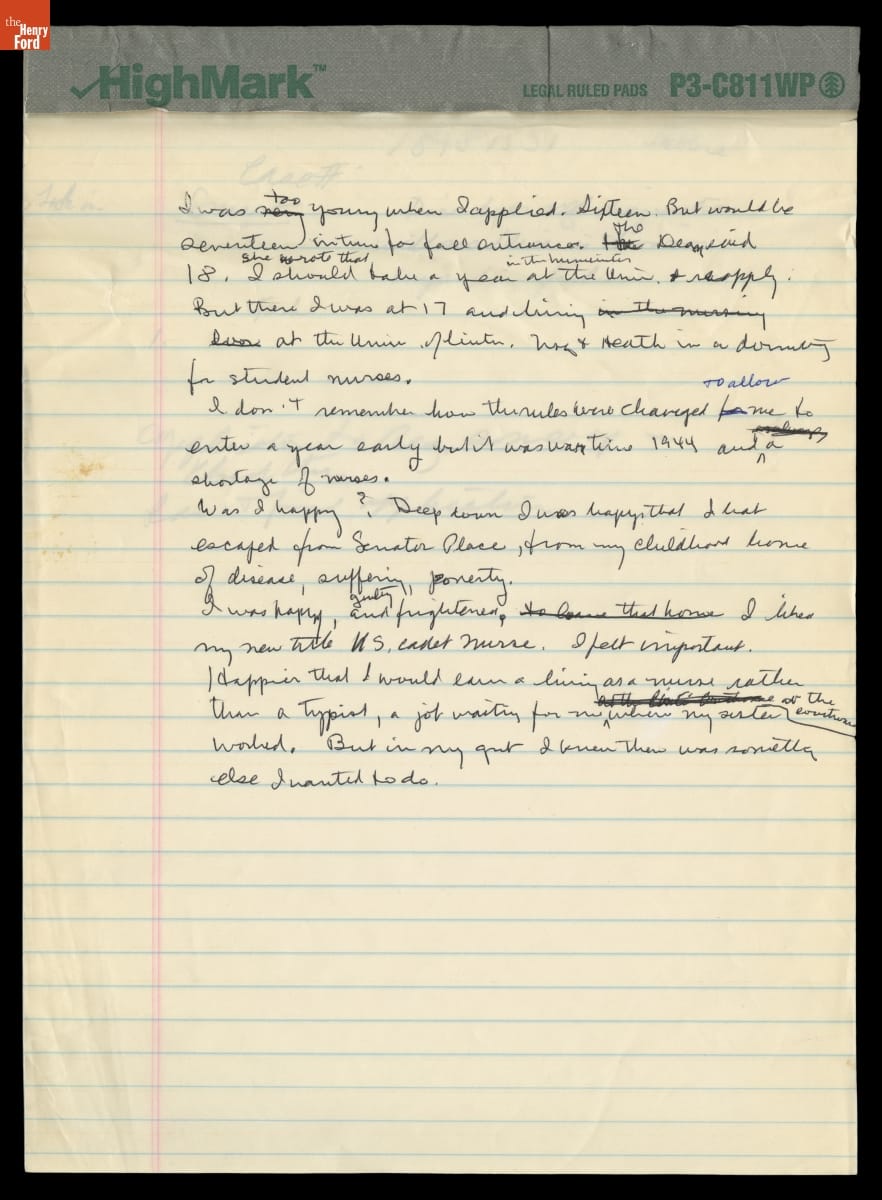 the
Henry
Ford
HighMark™
LEGAL RULED PADS P3-C811WP
too
I was very young when I applied. Sixteen. But would be
The
seventeen in time for fall entrance. Dean said
she wrote that in the humanities
18. I should take a year at the Univ. + reapply.
But there I was at 17 and living in the nursing
at the Univ. of Cinti. Nsg + Health in a dormitory
for student nurses.
to allow
I don't remember how the rules were changed for me to
enter a year early but it was war time 1944 and a
shortage of nurses.
Was I happy? Deep down I was happy that I had
escaped from Senator Place, from my childhood home
of disease, suffering, poverty.
guilty
I was happy, and frightened, to leave that home I liked
my new title U.S. cadet nurse. I felt important.
Happier that I would earn a living as a nurse rather
at the
than a typist, a job waiting for me where my sister courthouse
worked. But in my gut I knew there was something
else I wanted to do.